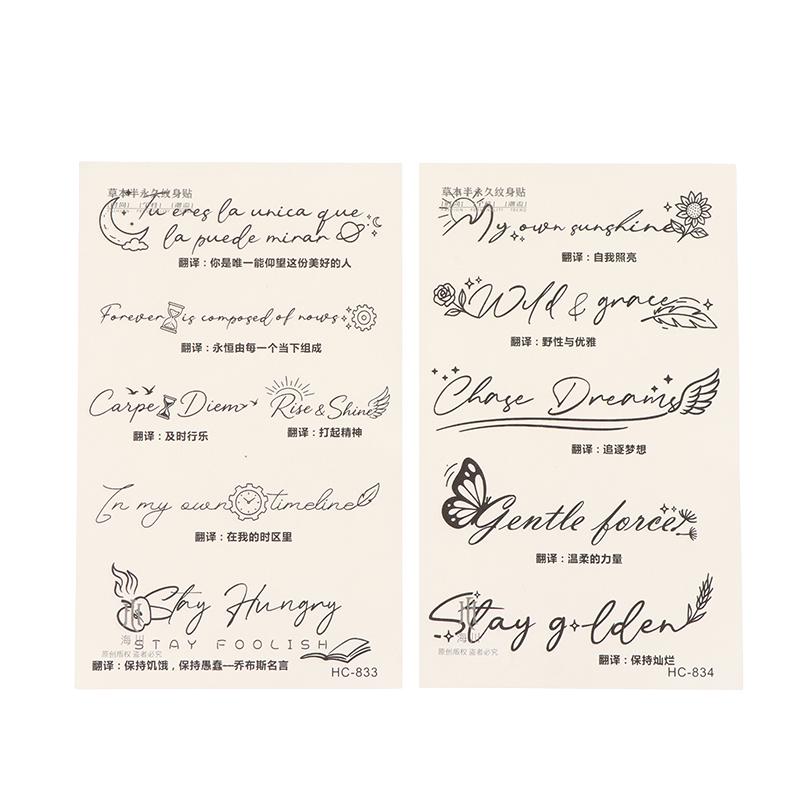 草本半永久纹身贴
Tu eres la unica que
la puede mirar
翻译：你是唯一能仰望这份美好的人
Forever is composed of nows
翻译：永恒由每一个当下组成
Carpe Diem
翻译：及时行乐
Rise & Shine
翻译：打起精神
In my own timeline
翻译：在我的时区里
Stay Hungry
STAY FOOLISH
海川
原创版权 盗者必究
翻译：保持饥饿，保持愚蠢—乔布斯名言
HC-833
草本半永久纹身贴
My own sunshine
翻译：自我照亮
Wild & grace
翻译：野性与优雅
Chase Dreams
翻译：追逐梦想
Gentle force
翻译：温柔的力量
Stay golden
海川
原创版权 盗者必究
翻译：保持灿烂
HC-834